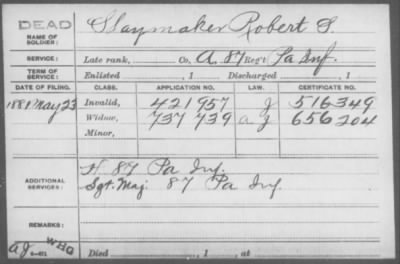 DEAD
NAME OF SOLDIER: Slaymaker Robert S.
SERVICE: Late rank, Co. A. 87 Reg't Pa Inf.
TERM OF SERVICE: Enlisted , 1 Discharged , 1
DATE OF FILING. CLASS. APPLICATION NO. LAW. CERTIFICATE NO.
1881 May 23 Invalid, 421957 J 516349
Widow, 737739 a J 656204
Minor,
ADDITIONAL SERVICES: H. 87 Pa Inf.
Sgt. Maj. 87 Pa Inf.
REMARKS:
WHO
Died , 1 , at